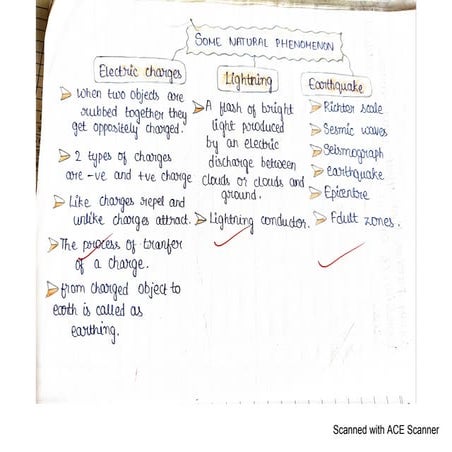 SOME NATURAL PHENOMENON
Electric charges
When two objects are
rubbed together they
get oppositely charged.
2 types of charges
are -ve and +ve charge
Like charges repel and
unlike charges attract.
The process of tranfer
of a charge.
from charged object to
earth is called as
earthing.
Lightning
A flash of bright
light produced
by an electric
discharge between
clouds or clouds and
ground.
Lightning conductor.
Earthquake
Richter scale
Sesmic waves
Seismograph
earthquake
Epicentre
Fault zones.
Scanned with ACE Scanner